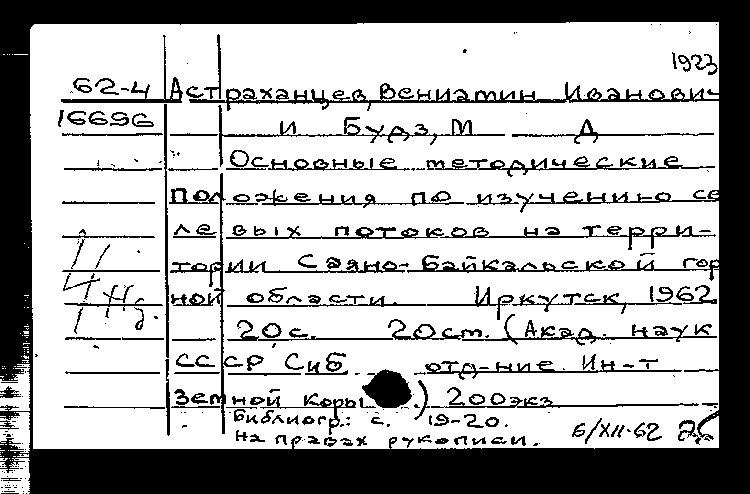 1923
62-4 Астраханцев, Вениамин Иванович
16696 и Будз, М Д
Основные методические
положения по изучению се
левых потоков на терри-
тории Саяно-Байкальской гор
ной области. Иркутск, 1962
20с. 20см. (Акад. наук
СССР Сиб. отд-ние. Ин-т
Земной коры.) 200экз
Библиогр.: с. 19-20.
На правах рукописи. 6/XII-62